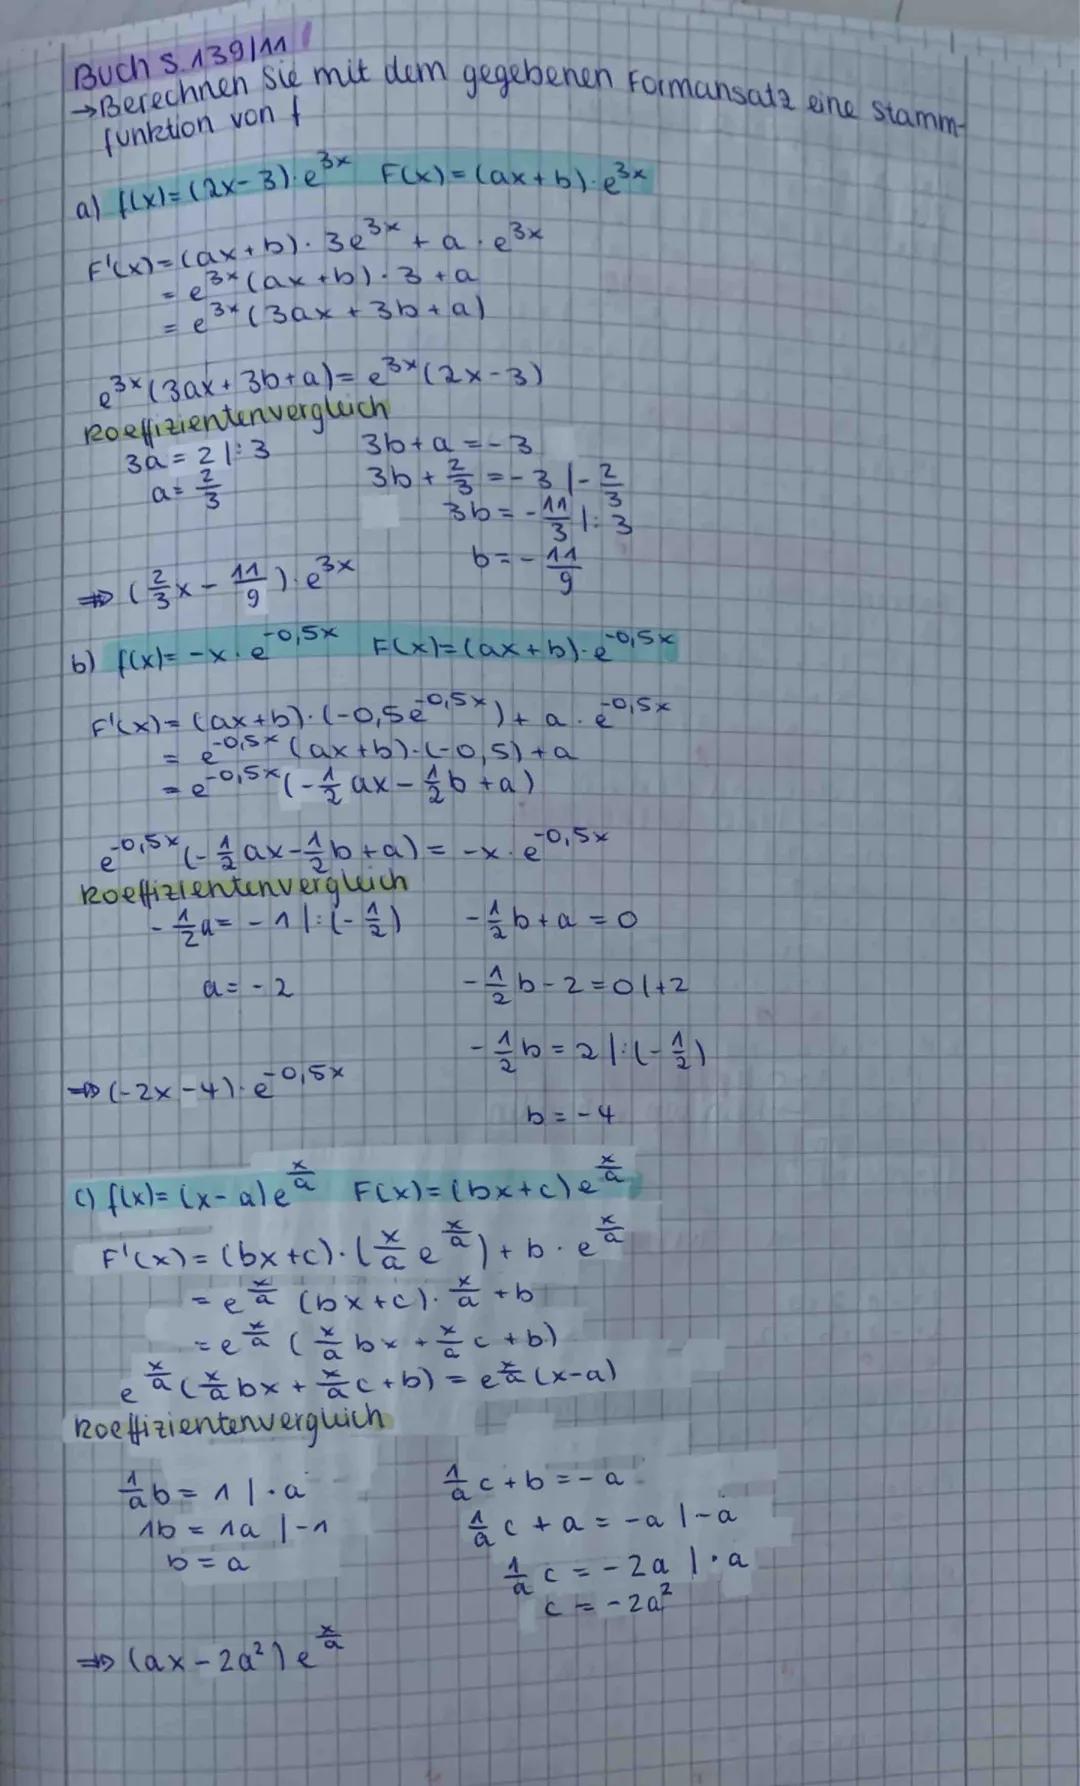 Buch S. 139/11
→Berechnen Sie mit dem gegebenen Formansatz eine Stamm-
funktion von f
a) f(x)=(2x-3)·e^3x F(x)=(ax+b)·e^3x
F'(x)=(ax+b)·3e^3x + a·e^3x
= e^3x(ax+b)·3+a
= e^3x(3ax+3b+a)
e^3x(3ax+3b+a)=e^3x(2x-3)
Koeffizientenvergleich
3a=2 |:3 3b+a=-3
a=2/3 3b+2/3=-3 |-2/3
3b=-11/3 |:3
b=-11/9
⇒ (2/3x-11/9)·e^3x
b) f(x)=-x·e^-0,5x F(x)=(ax+b)·e^-0,5x
F'(x)=(ax+b)·(-0,5e^-0,5x)+a·e^-0,5x
= e^-0,5x(ax+b)·(-0,5)+a
= e^-0,5x(-1/2ax-1/2b+a)
e^-0,5x(-1/2ax-1/2b+a)=-x·e^-0,5x
Koeffizientenvergleich
-1/2a=-1 |:(-1/2) -1/2b+a=0
a=-2 -1/2b-2=0 |+2
-1/2b=2 |:(-1/2)
⇒ (-2x-4)·e^-0,5x
b=-4
c) f(x)=(x-a)e^x/a F(x)=(bx+c)e^x/a
F'(x)=(bx+c)·(x/a e^x/a)+b·e^x/a
= e^x/a (bx+c)·x/a+b
= e^x/a (x/a bx+x/a c+b)
e^x/a(x/a bx+x/a c+b)=e^x/a(x-a)
Koeffizientenvergleich
1/a b=1 |·a 1/a c+b=-a
1b=1a |-1 1/a c+a=-a |-a
b=a 1/a c=-2a |·a
c=-2a²
⇒ (ax-2a²)e^x/a